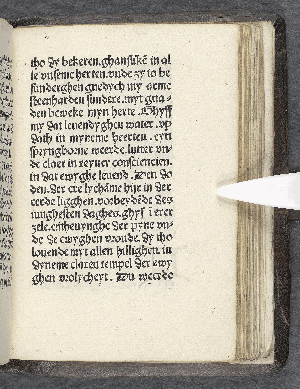 tho dy bekeren. ghansliken in al
le unseme herten. vnde dy to be
sunderghen gnedych my arme
steenharden sundere. myt gna-
den beweke myn herte. Ghyff
my dat leuendyghen water. vp
dath in myneme herten. eyn
spryngborne werde. lutter vn-
de claer in reyner consciencien.
in dat ewyghe leuend. Den do
den. der ere lychame hijr in der
eerde ligghen. vorbeydede des
iunghesten daghes. ghyf erer
zele. entheuynghe der pyne vn-
de de ewyghen vroude. dy tho
louende myt allen hillighen. in
dyneme claren tempel der ewy
ghen vrolycheyt. Du werde